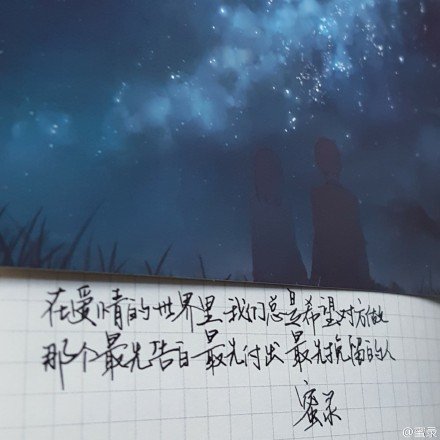 在爱情的世界里 我们总是希望对方做
那个最先告白 最先付出 最先挽留的人
蜜录
@蜜录